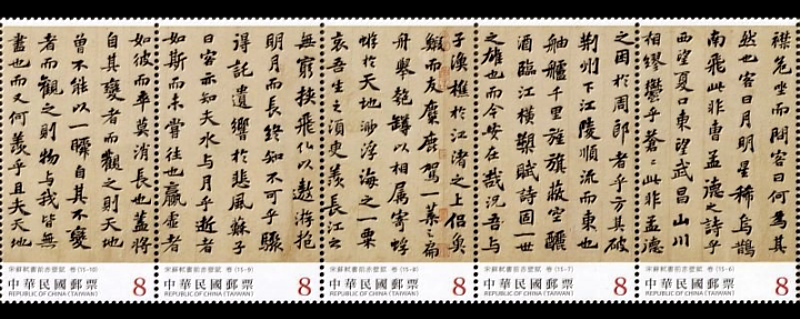 襟危坐而問客曰何為其
然也客曰月明星稀烏鵲
南飛此非曹孟德之詩乎
西望夏口東望武昌山川
相繆鬱乎蒼〻此非孟德
宋蘇軾書前赤壁賦 卷(15-6)
中華民國郵票 8
REPUBLIC OF CHINA (TAIWAN)
之困於周郎者乎方其破
荊州下江陵順流而東也
舳艫千里旌旗蔽空釃
酒臨江橫槊賦詩固一世
之雄也而今安在哉況吾與
宋蘇軾書前赤壁賦 卷(15-7)
中華民國郵票 8
REPUBLIC OF CHINA (TAIWAN)
子漁樵於江渚之上侶魚
鰕而友麋鹿駕一葉之扁
舟舉匏罇以相屬寄蜉
蝣於天地渺浮海之一粟
哀吾生之須臾羨長江之
宋蘇軾書前赤壁賦 卷(15-8)
中華民國郵票 8
REPUBLIC OF CHINA (TAIWAN)
無窮挾飛仙以遨遊抱
明月而長終知不可乎驟
得託遺響於悲風蘇子
曰客亦知夫水與月乎逝者
如斯而未嘗往也贏虛者
宋蘇軾書前赤壁賦 卷(15-9)
中華民國郵票 8
REPUBLIC OF CHINA (TAIWAN)
如彼而卒莫消長也蓋將
自其變者而觀之則天地
曾不能以一瞬自其不變
者而觀之則物與我皆無
盡也而又何羨乎且夫天地
宋蘇軾書前赤壁賦 卷(15-10)
中華民國郵票 8
REPUBLIC OF CHINA (TAIWAN)